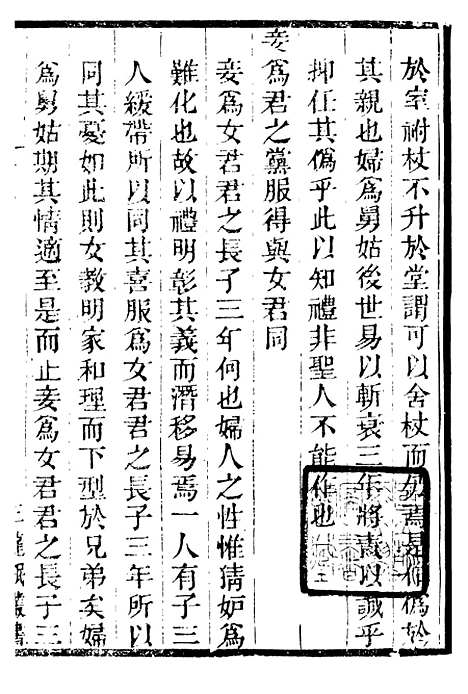 於室祔杖不升於堂謂可以舍杖而於
其親也婦爲舅姑後世易以斬衰三年將責以誠乎
抑任其僞乎此以知禮非聖人不能作也
妾爲君之黨服得與女君同
妾爲女君君之長子三年何也婦人之性惟猜妒爲
難化也故以禮明彰其義而潛移易焉一人有子三
人緩帶所以同其喜服爲女君君之長子三年所以
同其憂如此則女教明家和理而下型於兄弟矣婦
爲舅姑期其情適至是而止妾爲女君君之長子三